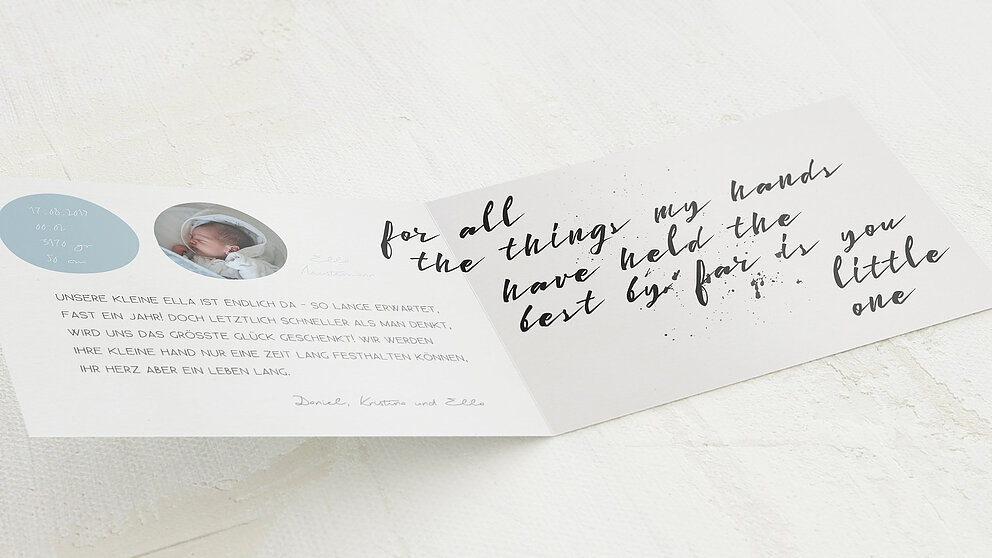 17.08.2017
00:02
3970 gr
50 cm
Ella
UNSERE KLEINE ELLA IST ENDLICH DA - SO LANGE ERWARTET,
FAST EIN JAHR! DOCH LETZTLICH SCHNELLER ALS MAN DENKT,
WIRD UNS DAS GRÖSSTE GLÜCK GESCHENKT! WIR WERDEN
IHRE KLEINE HAND NUR EINE ZEIT LANG FESTHALTEN KÖNNEN,
IHR HERZ ABER EIN LEBEN LANG.
Daniel, Kristina und Ella
for all
the things my hands
have held the
best by far is you
little
one